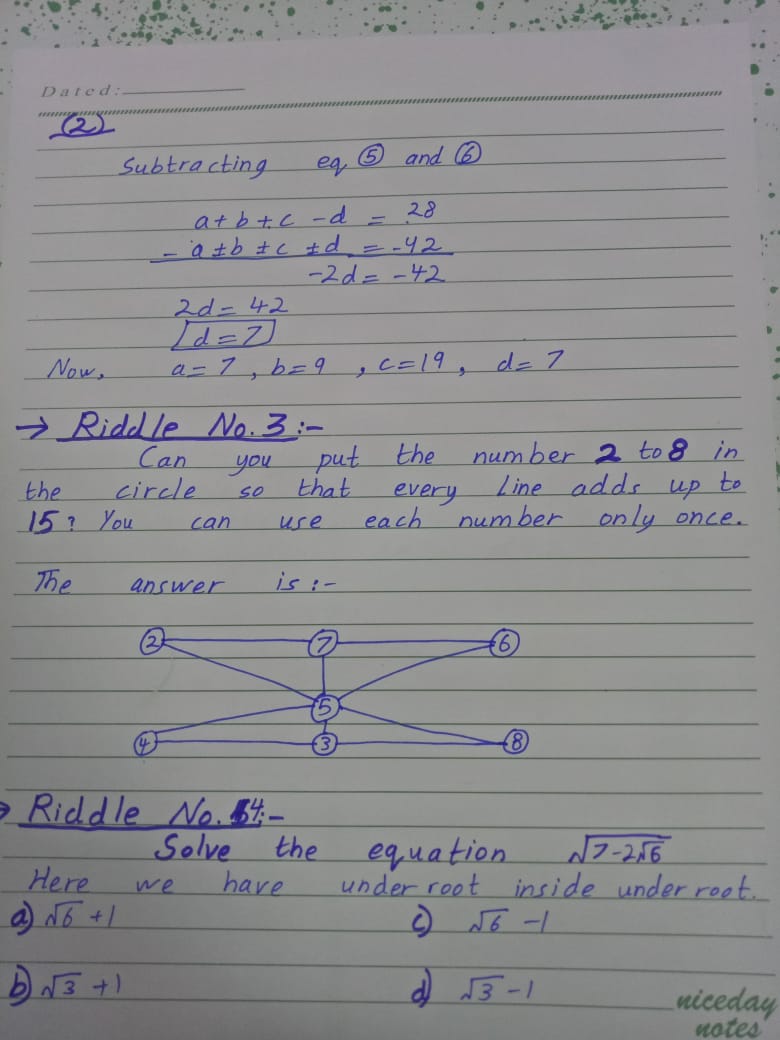 Dated:
(2)
Subtracting eq ⑤ and ⑥
a + b + c - d = 28
- a ± b ± c ± d = -42
-2d = -42
2d = 42
d = 7
Now, a = 7, b = 9, c = 19, d = 7
→ Riddle No. 3 :-
Can you put the number 2 to 8 in
the circle so that every line adds up to
15? You can use each number only once.
The answer is :-
2 7 6
5
4 3 8
→ Riddle No. 4 :-
Solve the equation √7-2√6
Here we have under root inside under root.
a) √6 + 1 c) √6 - 1
b) √3 + 1 d) √3 - 1
niceday
notes